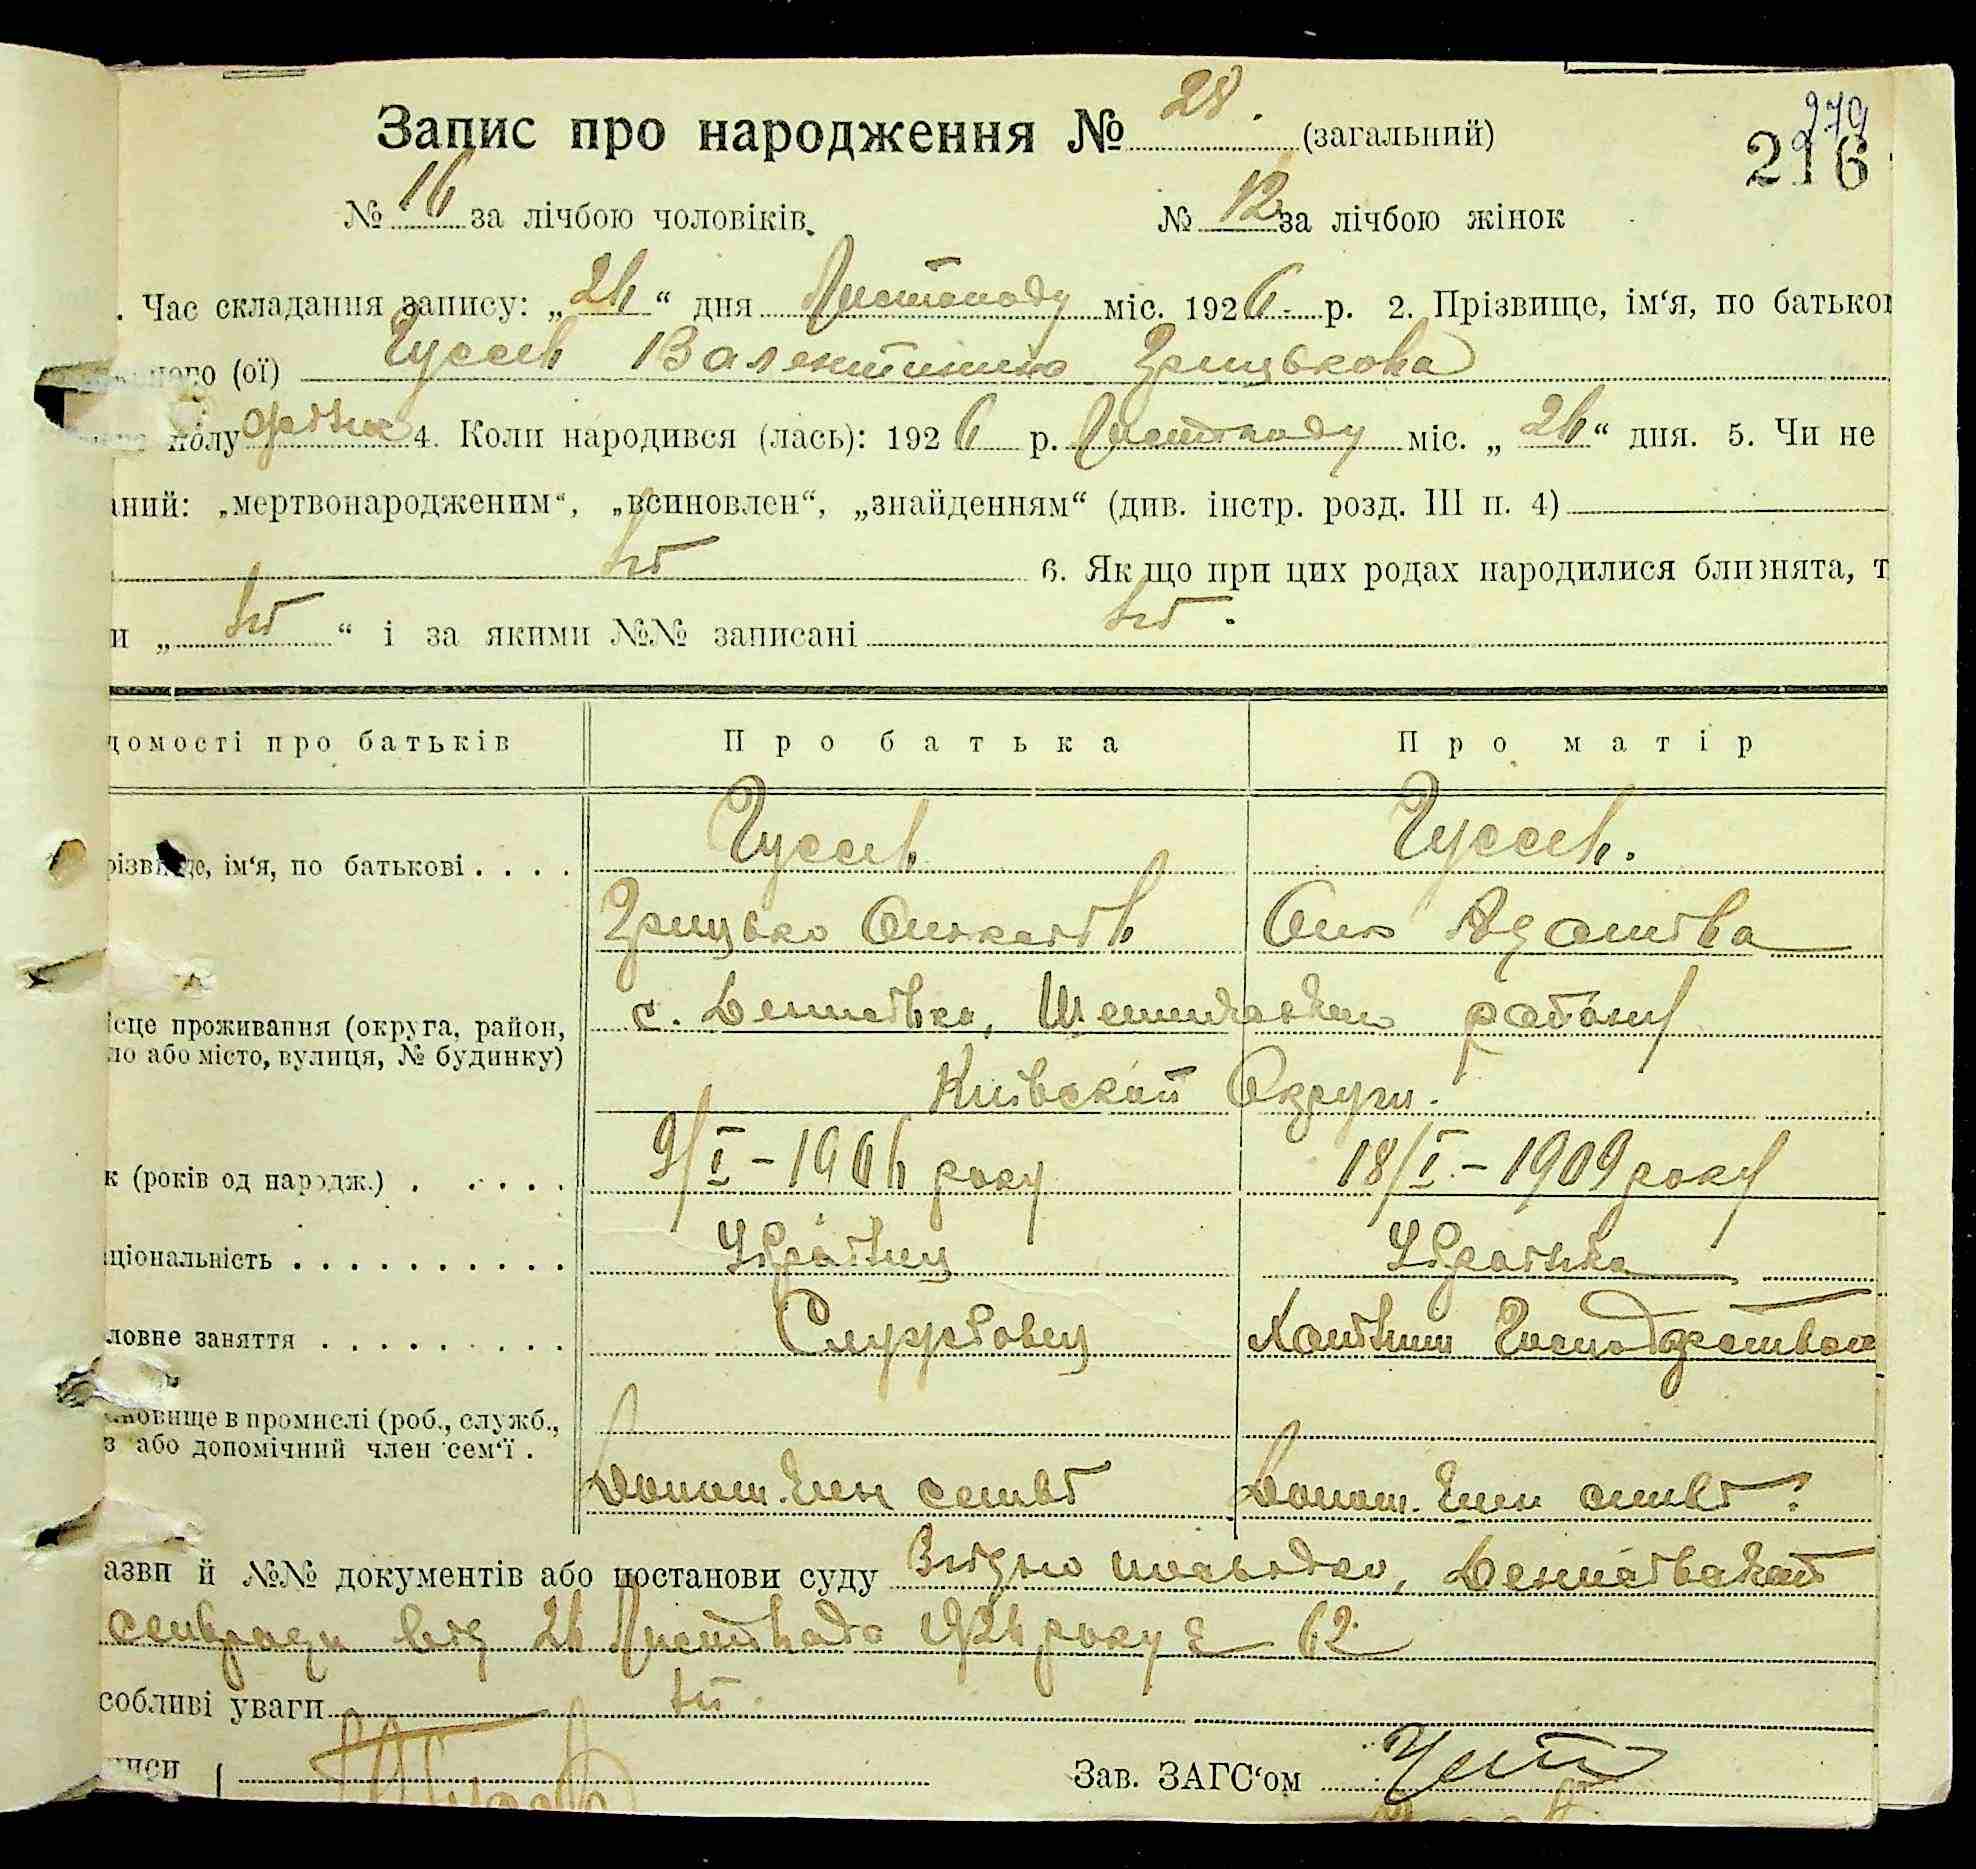 279
216
Запис про народження № 28. (загальний)
№ 16 за лічбою чоловіків. № 12 за лічбою жінок
. Час складання запису: „26“ дня Листопаду міс. 1926 р. 2. Прізвище, ім‘я, по батьков
ного (ої) Гуссев Валентина Грицькова
полу жіно 4. Коли народився (лась): 1926 р. Листопаду міс. „26“ дня. 5. Чи не
аний: „мертвонародженим“, „всиновлен“, „знайденням“ (див. інстр. розд. III п. 4)
ні 6. Якщо при цих родах народилися близнята, т
и „ні“ і за якими №№ записані ні.
домості про батьків Про батька Про матір
різвище, ім‘я, по батькові . . . . Гуссев Гуссев.
Грицько Адамівна
ісце проживання (округа, район,
ло або місто, вулиця, № будинку) с. району
Київської Округи.
к (років од народж.) . . . . . 9/I – 1906 року 18/I – 1909 року
аціональність . . . . . . . . . . Українец Українка
ловне заняття . . . . . . . . . Хатним Господарством
ановище в промислі (роб., служб.,
з або допомічний член сем‘ї .
Допом. член семьї Допом. член семьї
азви й №№ документів або постанови суду Згідно посвідки,
сельради від 26 Листопада 1926 року № 62
собливі уваги ні.
писи Зав. ЗАГС‘ом